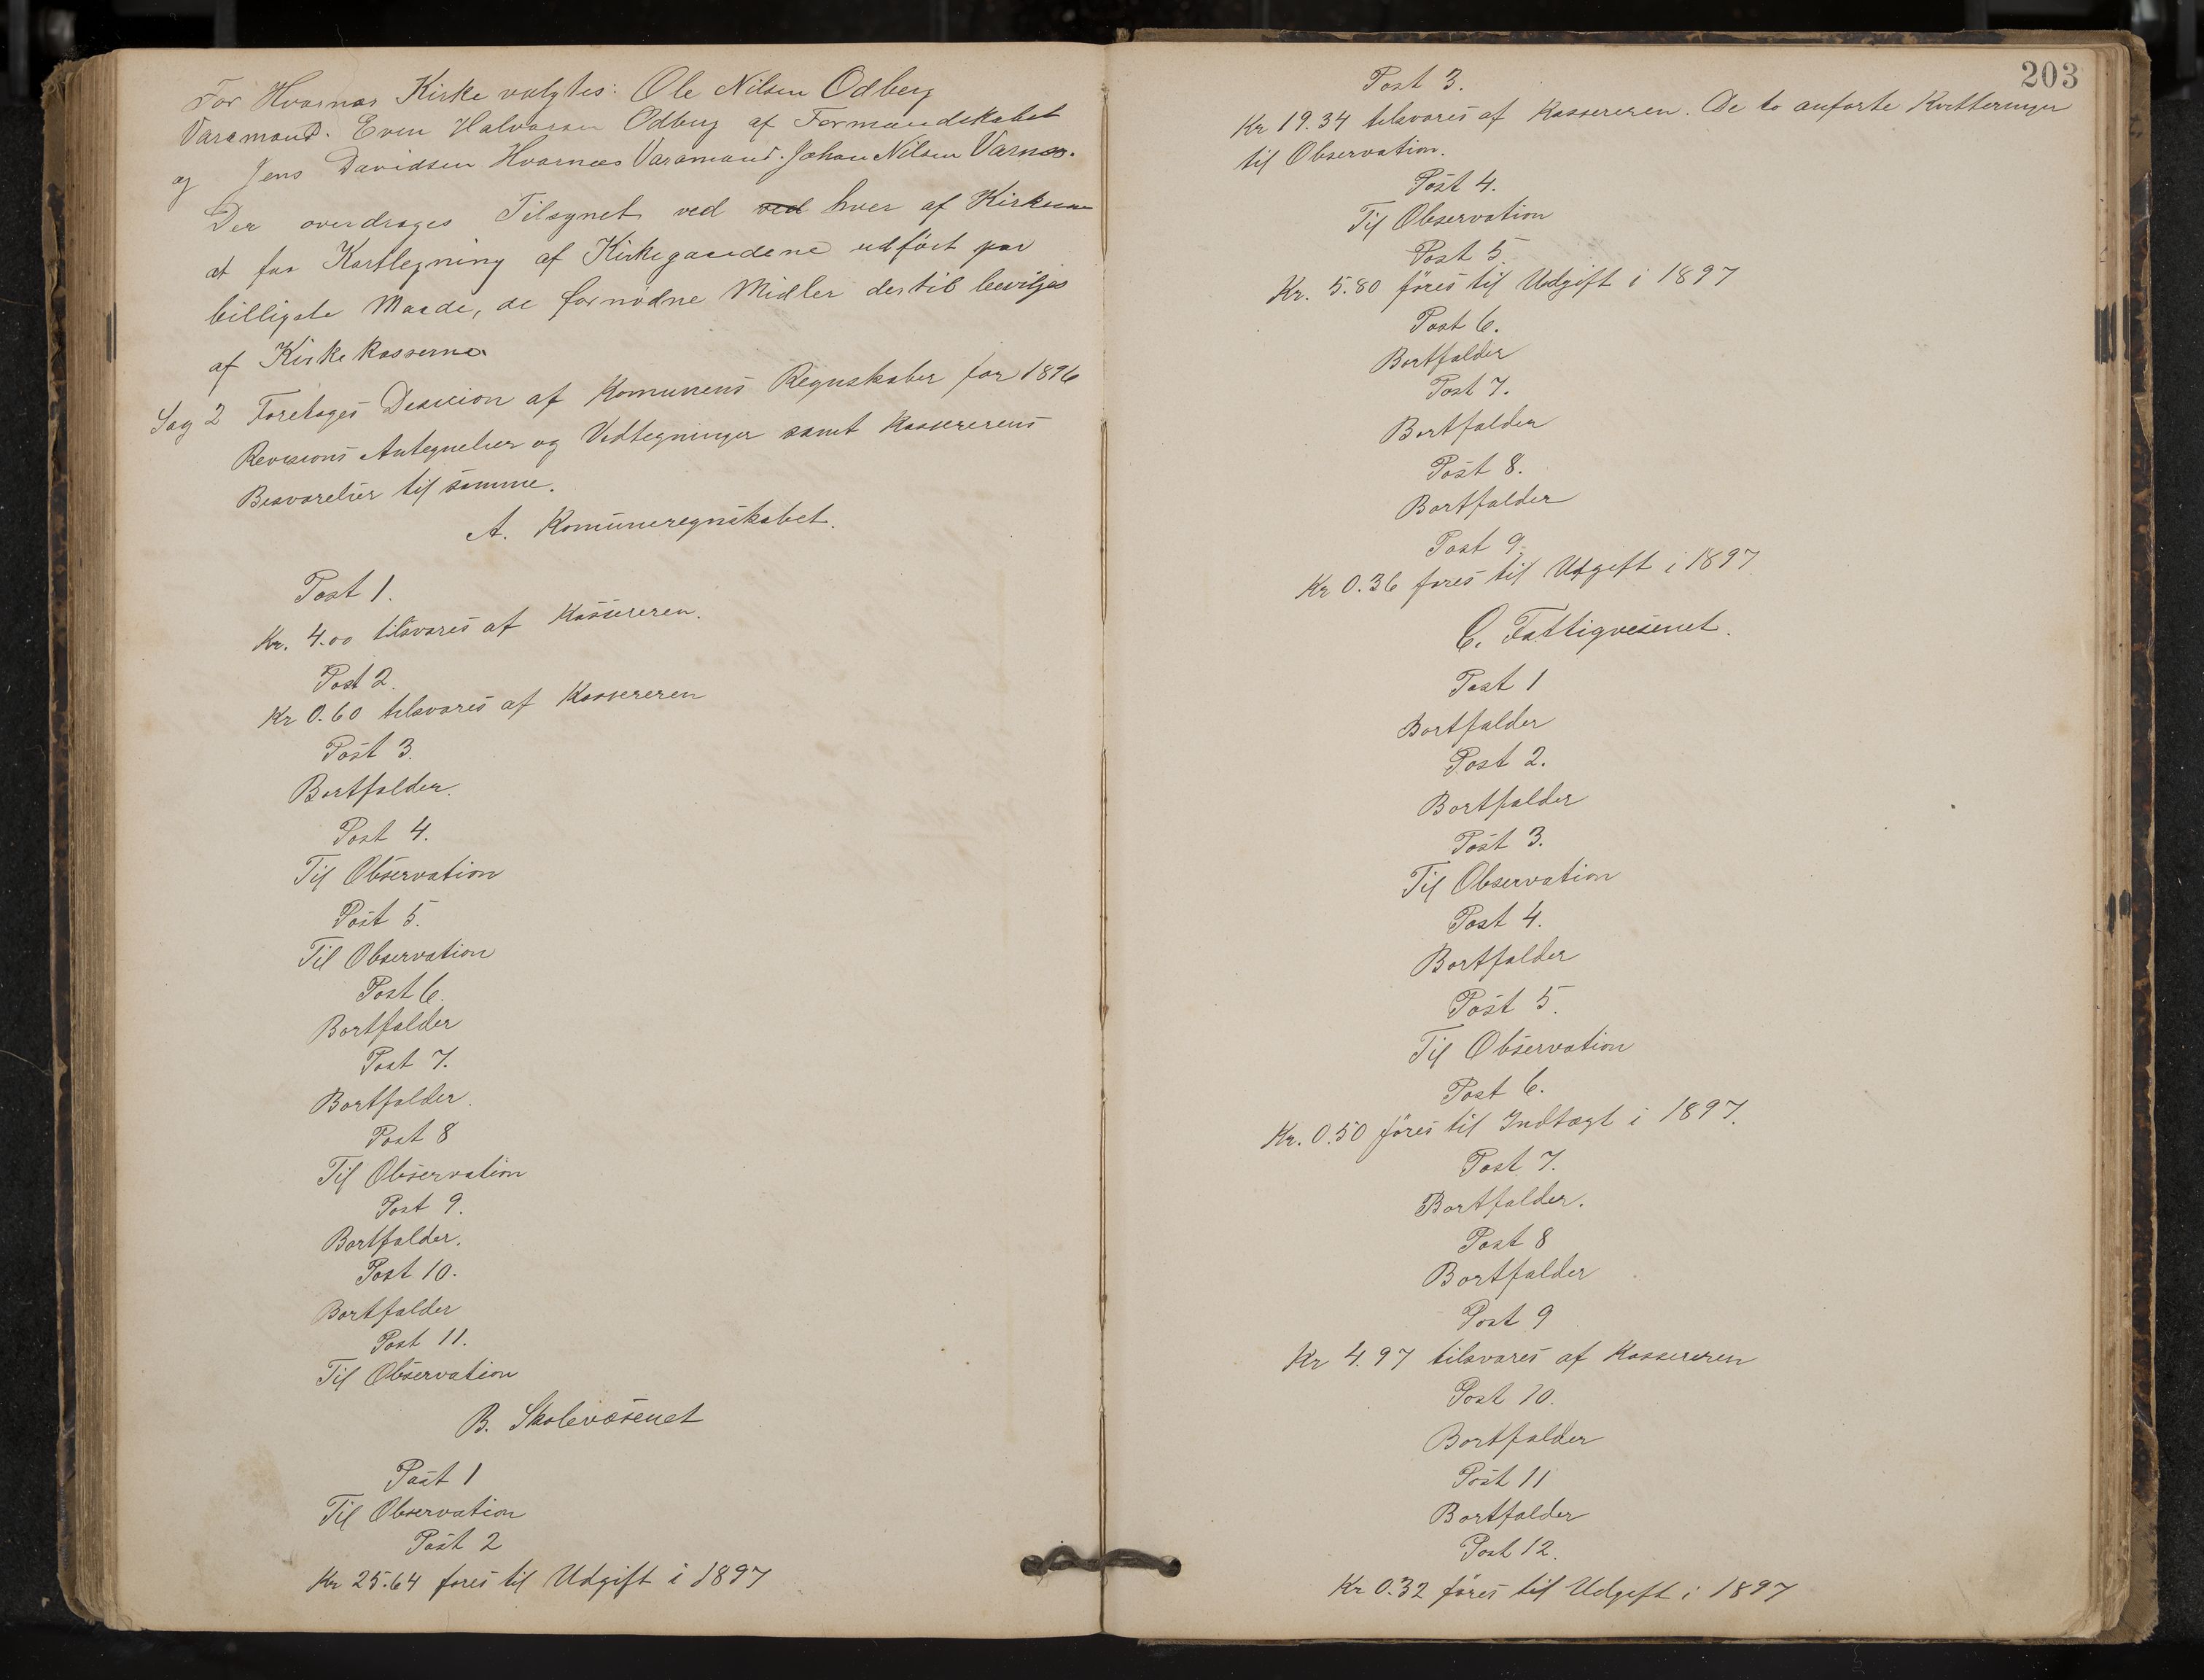 For Hvarnes Kirke valgtes: Ole Nilsen Odberg
Varamand. Even Halvorsen Odberg af Formandskabet
og Jens Davidsen Hvarnes Varamand. Johan Nilsen Varnes.
Der overdrages Tilsynet ved ved hver af Kirkerne
at faa Kartlegning af Kirkegaardene udfört paa
billigste Maade, de fornödne Midler dertil bevilges
af Kirkekasserne
Sag 2 Foretages Desision af Komunens Regnskaber for 1896
Revisions Antegnelser og Vedtegninger samt Kassererens
Besvarelser til samme.
A. Komuneregnskabet.
Post 1.
Kr. 4.00 tilsvares af Kassereren.
Post 2.
Kr 0.60 tilsvares af Kassereren
Post 3.
Bortfalder.
Post 4.
Til Observation
Post 5.
Til Observation
Post 6.
Bortfalder
Post 7.
Bortfalder.
Post 8
Til Observation
Post 9.
Bortfalder.
Post 10.
Bortfalder
Post 11.
Til Observation
B. Skolevæsenet
Post 1
Til Observation
Post 2
Kr 25.64 föres til Udgift i 1897
203
Post 3.
Kr 19.34 tilsvares af Kassereren. De to anförte Kvitteringer
til Observation.
Post 4.
Til Observation
Post 5.
Kr. 5.80 föres til Udgift i 1897
Post 6.
Bortfalder
Post 7.
Bortfalder
Post 8.
Bortfalder
Post 9.
Kr 0.36 föres til Udgift i 1897
C. Fattigvesenet.
Post 1
Bortfalder
Post 2.
Bortfalder
Post 3.
Til Observation
Post 4.
Bortfalder
Post 5.
Til Observation
Post 6.
Kr. 0.50 föres til Indtægt i 1897.
Post 7.
Bortfalder.
Post 8
Bortfalder
Post 9
Kr 4.97 tilsvares af Kassereren
Post 10.
Bortfalder
Post 11
Bortfalder
Post 12.
Kr 0.32 föres til Udgift i 1897